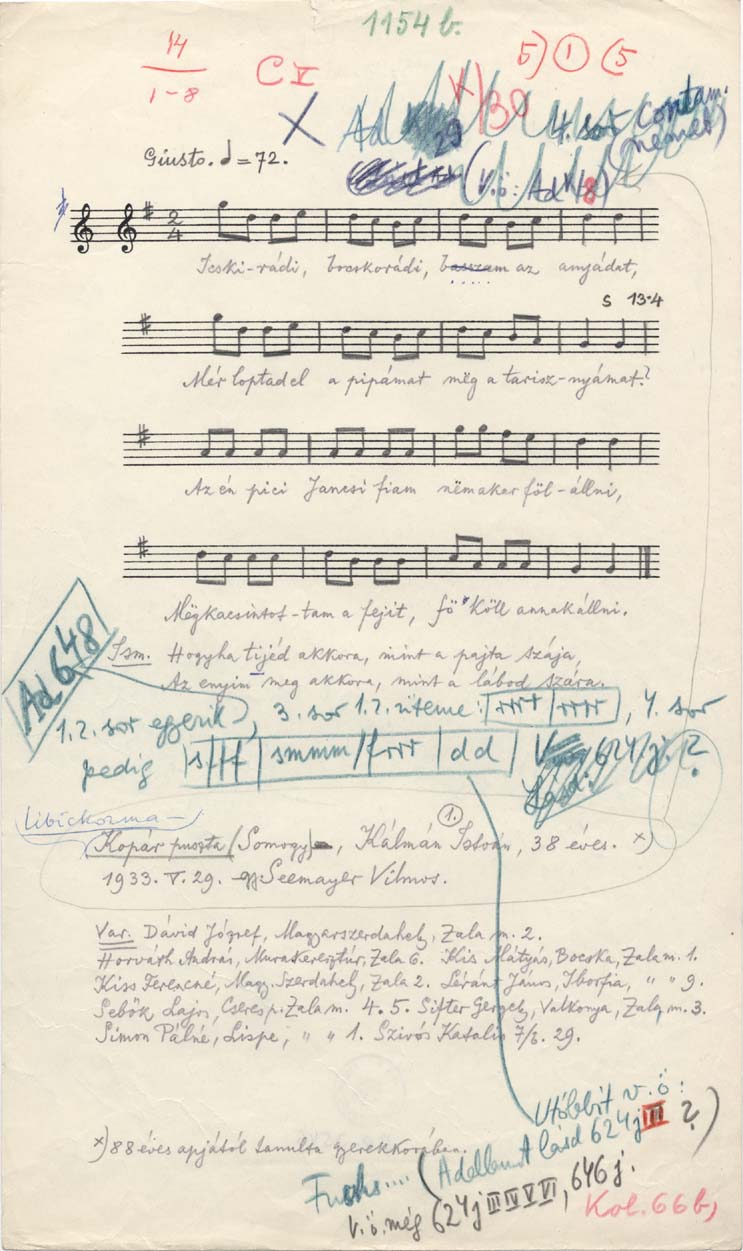 1154 b.
14
1-8
C V
5) ① (5
X Ad 29 4. sor Contam.
X)30
(német)
Giusto. ♩=72.
(V.ö: Ad 8)
2
4
Icski-rádi, bocskorádi, basszam az anyádat,
S 13·4
Mér loptadel a pipámat mëg a tarisz-nyámat?
Az én pici Jancsi fiam nëmaker föl-állni,
Mëgkacsintot-tam a fejit, fő köll annakállni.
Ad 648
Ism. Hogyha tijéd akkora, mint a pajta szája,
Az enyim meg akkora, mint a lábod szára.
1.2. sor egyezik, 3. sor 1.2. üteme: |rrrr|rrrr|, 4. sor
pedig smmm/frrr|dd| Lásd: 624j. ?
Libickozma-
Kopár puszta (Somogy), Kálmán István, 38 éves. x)
1.
1933. V. 29. Seemayer Vilmos.
Var. Dávid József, Magyarszerdahely, Zala m. 2.
Horváth András, Murakeresztúr, Zala 6. Kis Mátyás, Bocska, Zala m. 1.
Kiss Ferencné, Magy. Szerdahely, Zala 2. Léránt János, Iborfia, " " 9.
Sebők Lajos, Cseresp. Zala m. 4. 5. Sifter Gergely, Valkonya, Zala m. 3.
Simon Pálné, Lispe, " " 1. Szivós Katalin 7/I. 29.
Utóbbit v.ö:
x) 88 éves apjától tanulta gyerekkorában.
(Adellenut lásd 624j III ?)
Fuchs....
V.ö. még 624j III IV V VI, 646j.
Kol. 66b,